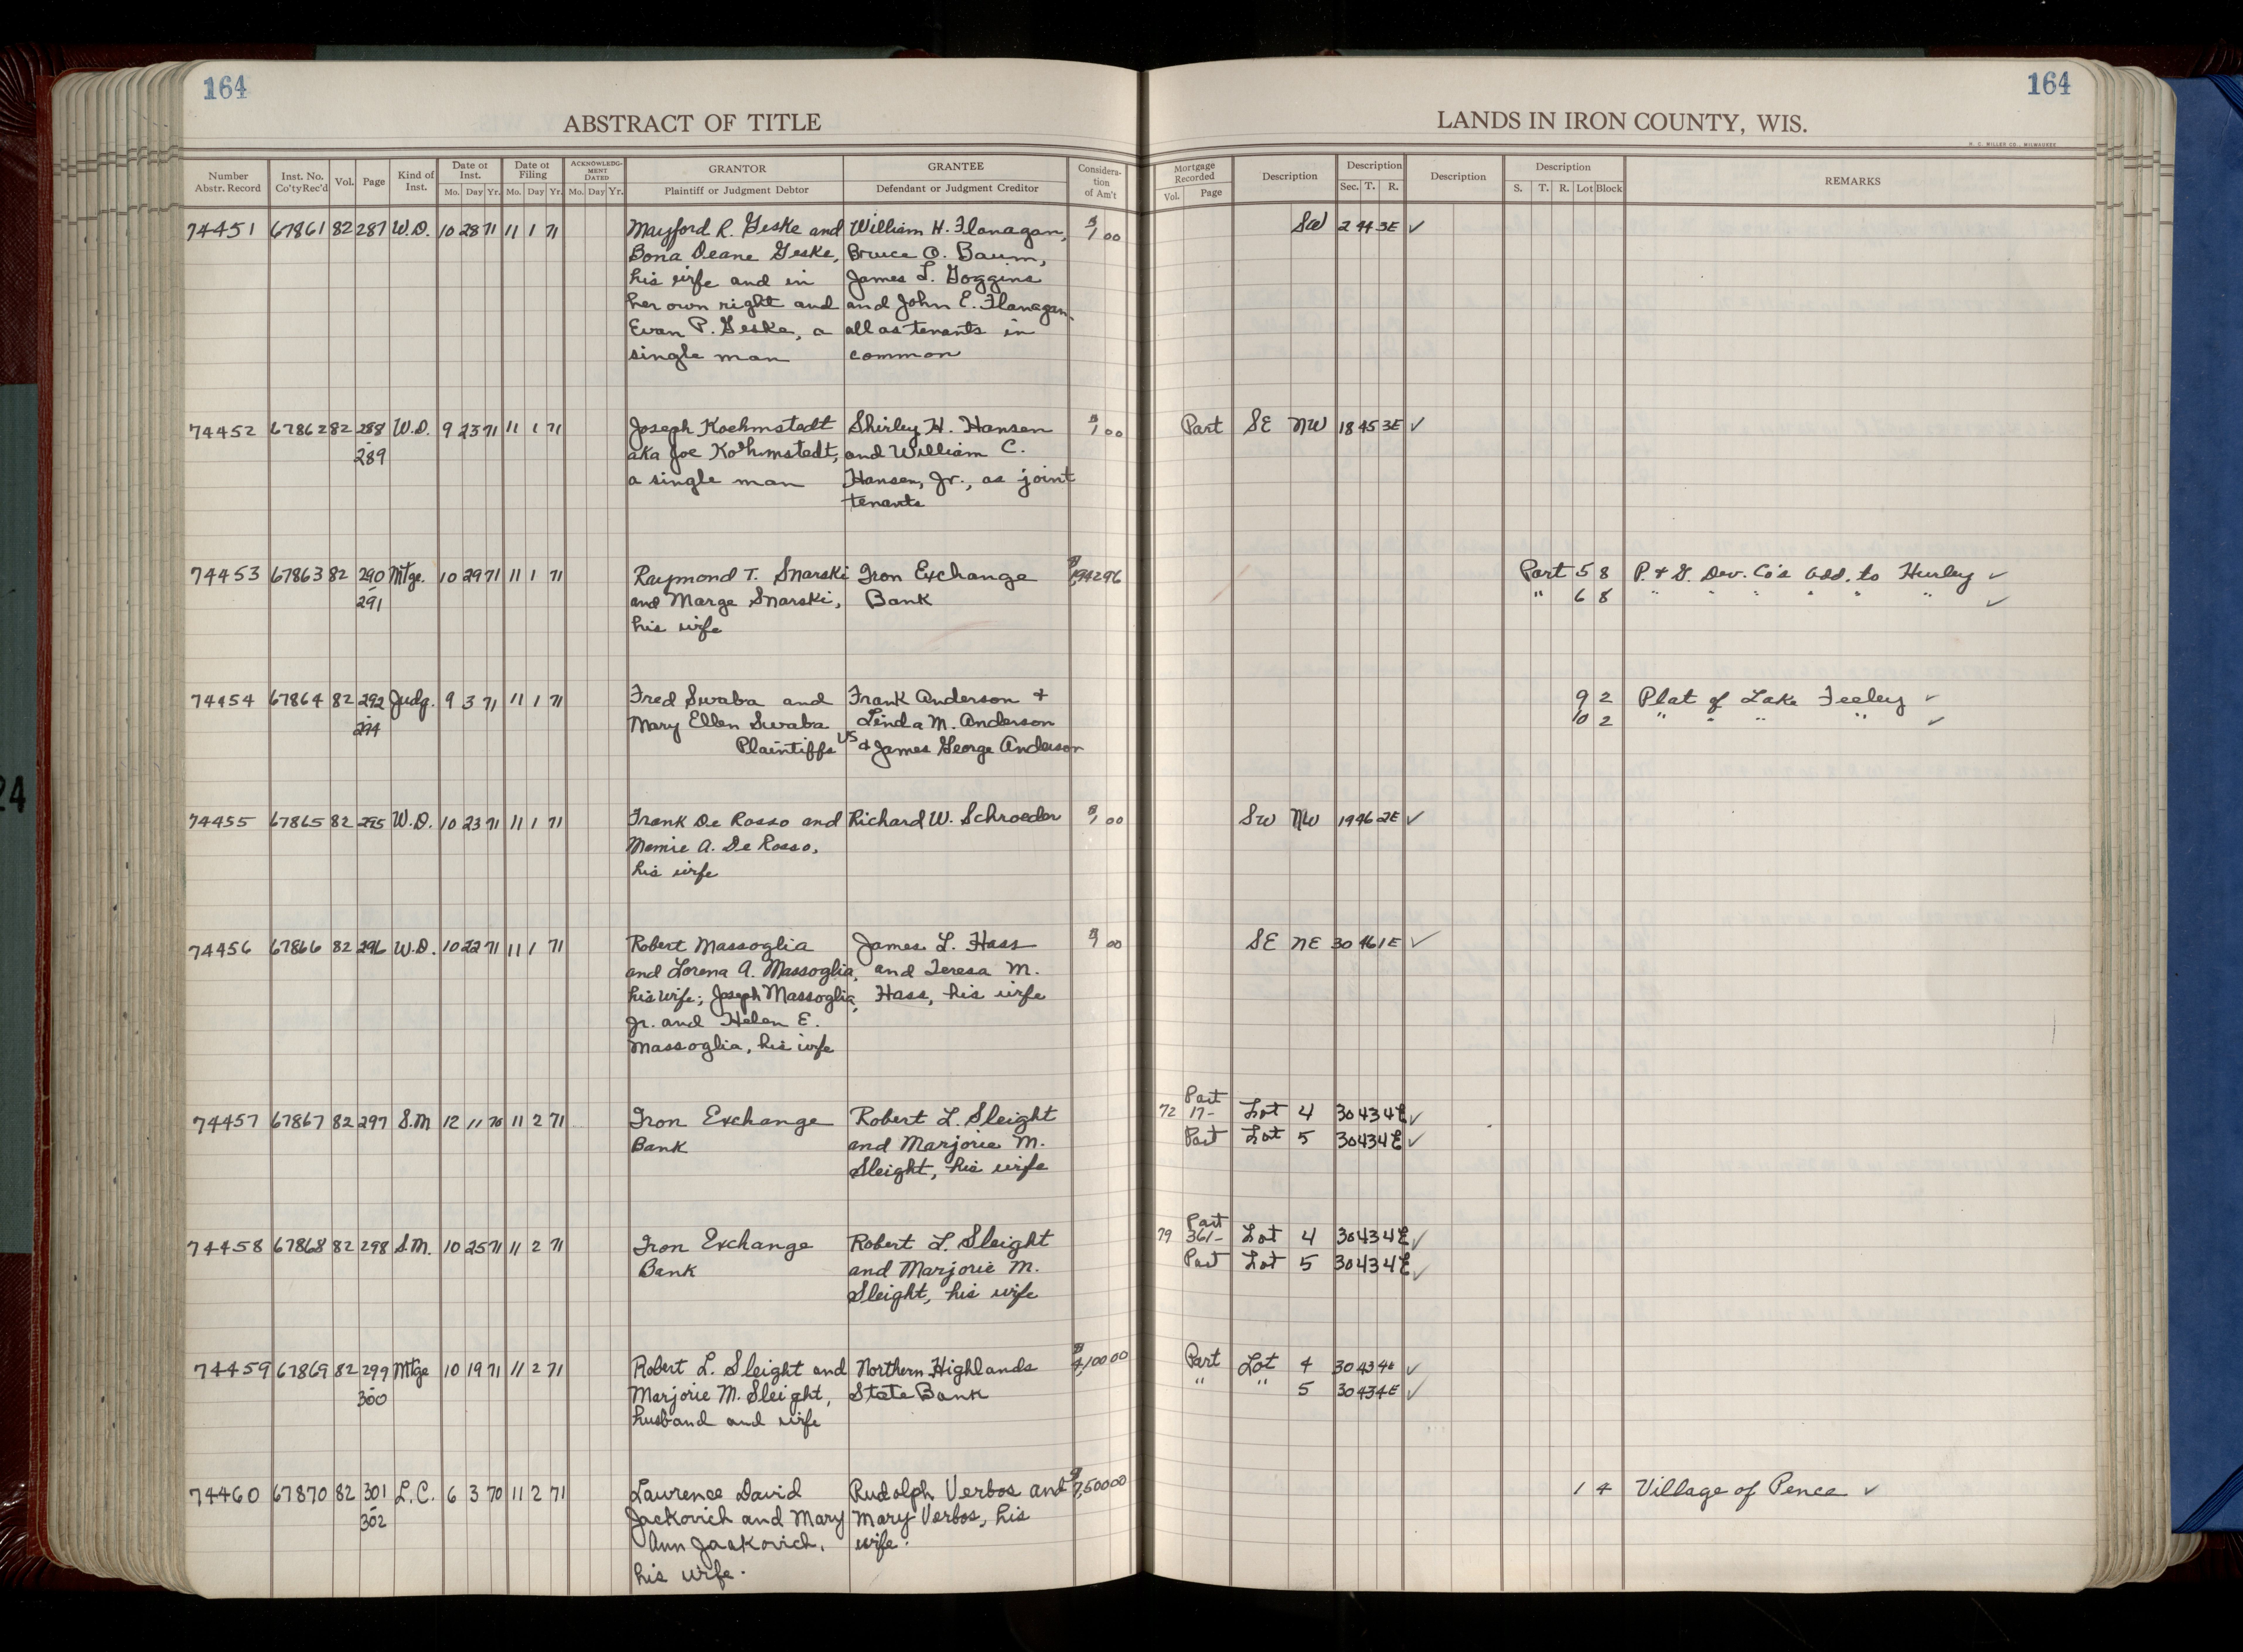 164
164
ABSTRACT OF TITLE
LANDS IN IRON COUNTY, WIS.
H. C. MILLER CO., MILWAUKEE
Number Abstr. Record
Inst. No. Co'ty Rec'd
Vol.
Page
Kind of Inst.
Date of Inst.
Mo. Day Yr.
Date of Filing
Mo. Day Yr.
ACKNOWLEDGMENT DATED
Mo. Day Yr.
GRANTOR
Plaintiff or Judgment Debtor
GRANTEE
Defendant or Judgment Creditor
Consideration of Am't
Mortgage Recorded
Vol. Page
Description
Description
Sec. T. R.
Description
Description
S. T. R. Lot Block
REMARKS
74451 67861 82 287 W.D. 10 28 71 11 1 71 Mayford R. Geske and William H. Flanagan, $1 00 SW 2 44 3E ✓
Bona Deane Geske, Bruce O. Baum,
his wife and in James L. Goggins
her own right and and John E. Flanagan.
Evan P. Geske, a all as tenants in
single man common
74452 67862 82 288 W.D. 9 23 71 11 1 71 Joseph Koehmstedt Shirley H. Hansen $1 00 Part SE NW 18 45 3E ✓
- 289 aka Joe Koehmstedt, and William C.
a single man Hansen, Jr., as joint
tenants
74453 67863 82 290 Mtge. 10 29 71 11 1 71 Raymond T. Snarski Iron Exchange $1,942 96 Part 5 8 P. & G. Dev. Co's Add. to Hurley ✓
- 291 and Marge Snarski, Bank " 6 8 " " " " " " ✓
his wife
74454 67864 82 292 Judg. 9 3 71 11 1 71 Fred Swaba and Frank Anderson & 9 2 Plat of Lake Feeley ✓
- 294 Mary Ellen Swaba Linda M. Anderson 10 2 " " " " ✓
Plaintiffs VS & James George Anderson
74455 67865 82 295 W.D. 10 23 71 11 1 71 Frank De Rosso and Richard W. Schroeder $1 00 SW NW 19 46 2E ✓
Mamie A. De Rosso,
his wife
74456 67866 82 296 W.D. 10 22 71 11 1 71 Robert Massoglia James L. Hass $1 00 SE NE 30 46 1E ✓
and Lorena A. Massoglia, and Teresa M.
his wife; Joseph Massoglia, Hass, his wife
Jr. and Helen E.
Massoglia, his wife
Part
74457 67867 82 297 S.M 12 11 70 11 2 71 Iron Exchange Robert L. Sleight 72 17- Lot 4 30 43 4E ✓
Bank and Marjorie M. Part Lot 5 30 43 4E ✓
Sleight, his wife
Part
74458 67868 82 298 S.M. 10 25 71 11 2 71 Iron Exchange Robert L. Sleight 79 361- Lot 4 30 43 4E ✓
Bank and Marjorie M. Part Lot 5 30 43 4E ✓
Sleight, his wife
74459 67869 82 299 Mtge 10 19 71 11 2 71 Robert L. Sleight and Northern Highlands $4,100 00 Part Lot 4 30 43 4E ✓
- 300 Marjorie M. Sleight, State Bank " " 5 30 43 4E ✓
husband and wife
74460 67870 82 301 L.C. 6 3 70 11 2 71 Lawrence David Rudolph Verbos and $7,500 00 1 4 Village of Pence ✓
- 302 Jackovich and Mary Mary Verbos, his
Ann Jackovich, wife.
his wife.
24